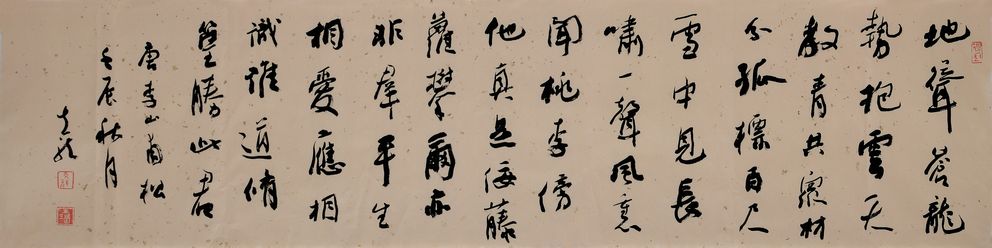 地聳蒼龍
勢抱雲天
教青共眾材
分孤標百尺
雪中見長
嘯一聲風裏
聞桃李傍
他真是佞藤
蘿攀爾亦
非羣平生
相愛應相
識誰道脩
篁勝此君
唐李山甫松
壬辰秋月